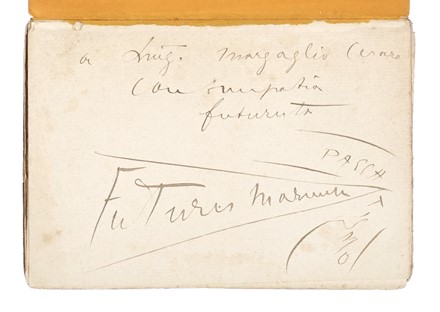 a Luig. Margaglio
con simpatia
futurista
PASSA
FuTuris Marinetti
TISMO